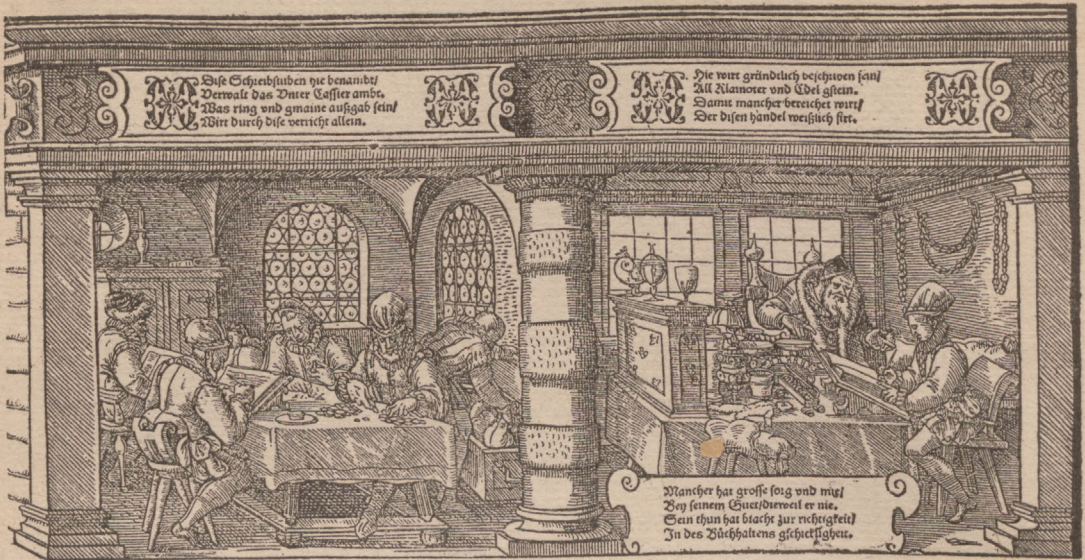 Dise Schreibstuben hie benambt/
Verwalt das Vnter Cassier ambt.
Was ring vnd gmaine außgab sein/
Wirt durch dise verricht allein.
Hie wirt gründtlich beschriben fein/
All Klainoter vnd Edel gstein.
Damit mancher bereichet wirt/
Der disen handel weißlich fürt.
Mancher hat grosse sorg vnd mü/
Bey seinem Guet/dieweil er nie.
Sein thun hat bracht zur richtigkeit/
In des Büchhaltens gschickligheit.